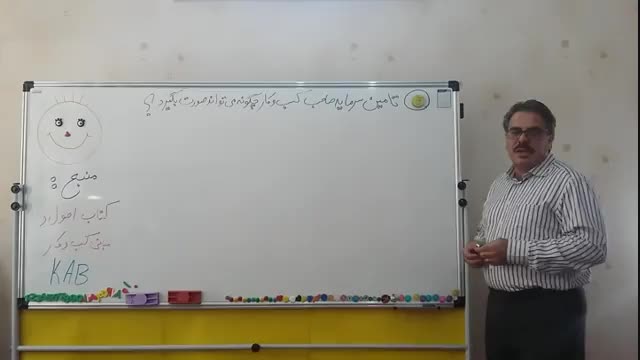 تامین سرمایه صاحب کسب و کار چگونه می تواند صورت بگیرد؟
منبع:
کتاب اصول و
مبانی کسب و کار
KAB